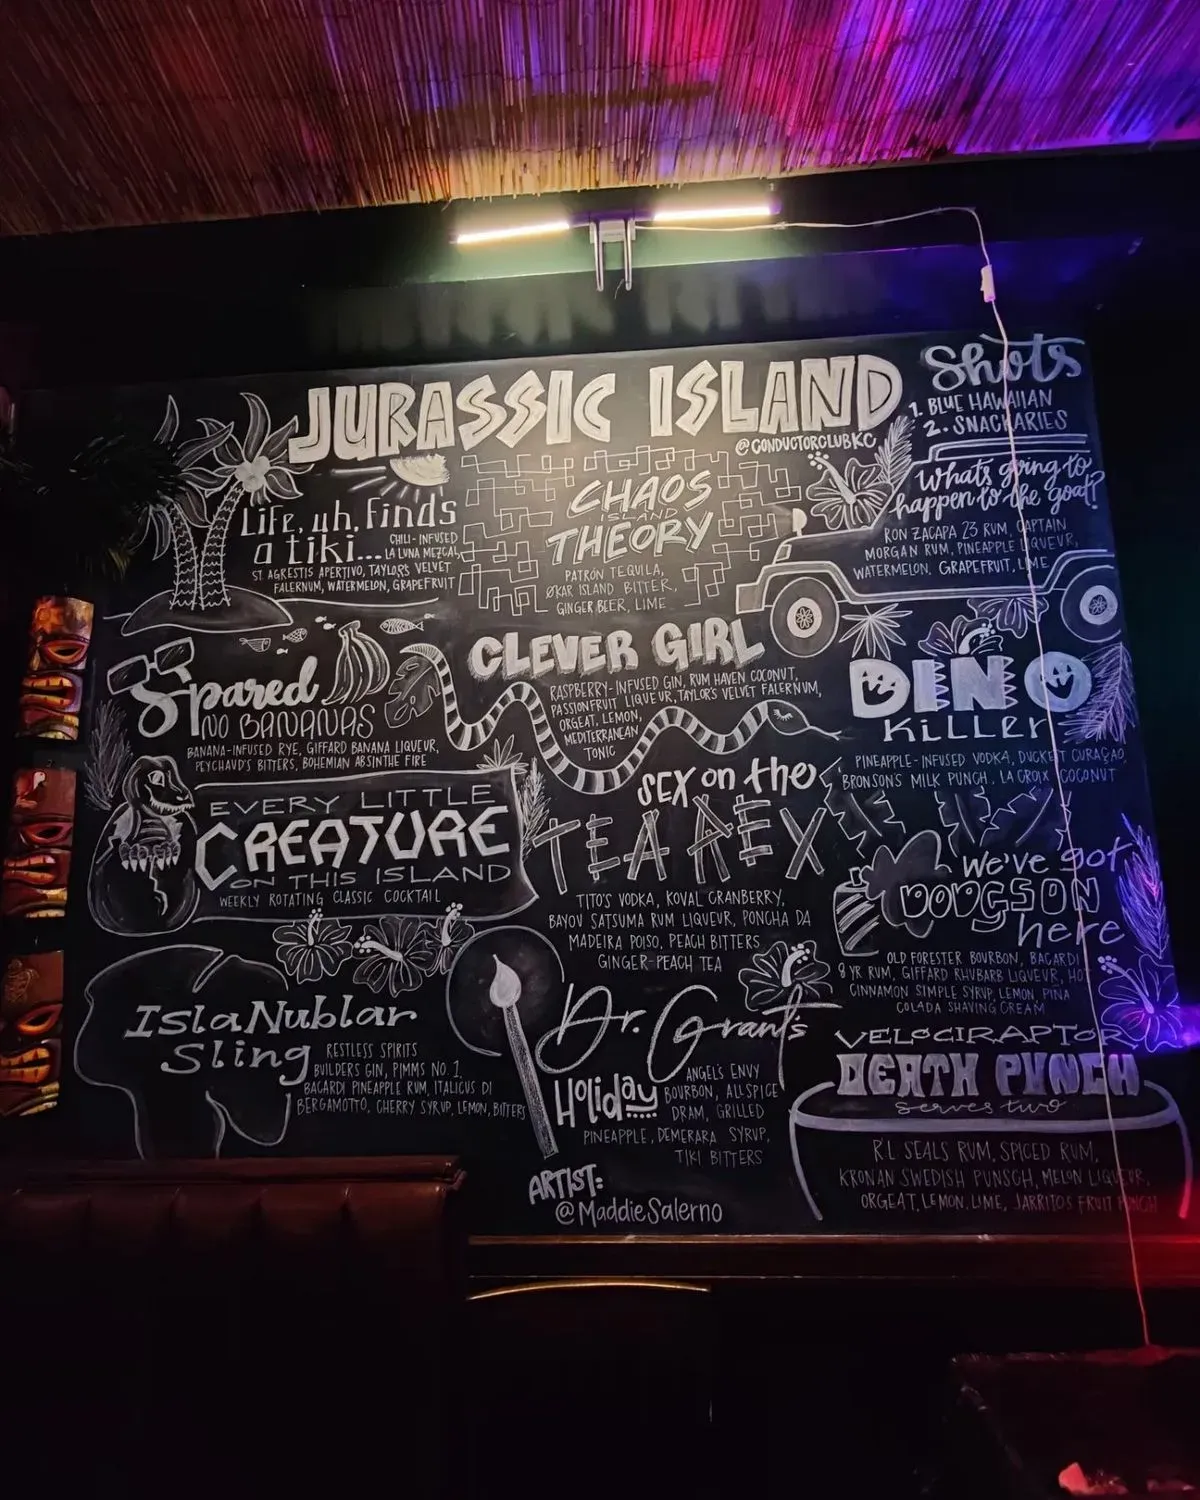 JURASSIC ISLAND
@CONDUCTORCLUBKC
Shots
1. BLUE HAWAIIAN
2. SNACKARIES
Life, uh, finds
a tiki...
CHILI-INFUSED
LA LUNA MEZCAL,
ST. AGRESTIS APERTIVO, TAYLOR'S VELVET
FALERNUM, WATERMELON, GRAPEFRUIT
CHAOS
ISLAND
THEORY
PATRÓN TEQUILA,
ØKAR ISLAND BITTER,
GINGER BEER, LIME
What's going to
happen to the goat?
RON ZACAPA 23 RUM, CAPTAIN
MORGAN RUM, PINEAPPLE LIQUEUR,
WATERMELON, GRAPEFRUIT, LIME
Spared
NO BANANAS
BANANA-INFUSED RYE, GIFFARD BANANA LIQUEUR,
PEYCHAUD'S BITTERS, BOHEMIAN ABSINTHE FIRE
CLEVER GIRL
RASPBERRY-INFUSED GIN, RUM HAVEN COCONUT,
PASSIONFRUIT LIQUEUR, TAYLOR'S VELVET FALERNUM,
ORGEAT, LEMON,
MEDITERRANEAN
TONIC
DINO
KILLER
PINEAPPLE-INFUSED VODKA, DUCKET CURAÇAO,
BRONSON'S MILK PUNCH, LA CROIX COCONUT
EVERY LITTLE
CREATURE
ON THIS ISLAND
WEEKLY ROTATING CLASSIC COCKTAIL
SEX on the
TEA REX
TITO'S VODKA, KOVAL CRANBERRY,
BAYOU SATSUMA RUM LIQUEUR, PONCHA DA
MADEIRA POISO, PEACH BITTERS
GINGER-PEACH TEA
We've got
DODGSON
here
OLD FORESTER BOURBON, BACARDI
8 YR RUM, GIFFARD RHUBARB LIQUEUR, HOT
CINNAMON SIMPLE SYRUP, LEMON, PIÑA
COLADA SHAVING CREAM
Isla Nublar
Sling
RESTLESS SPIRITS
BUILDERS GIN, PIMMS NO. 1,
BACARDI PINEAPPLE RUM, ITALICUS DI
BERGAMOTTO, CHERRY SYRUP, LEMON, BITTERS
Dr. Grant's
Holiday
ANGEL'S ENVY
BOURBON, ALLSPICE
DRAM, GRILLED
PINEAPPLE, DEMERARA SYRUP,
TIKI BITTERS
VELOCIRAPTOR
DEATH PUNCH
serves two
R.L. SEALS RUM, SPICED RUM,
KRONAN SWEDISH PUNSCH, MELON LIQUEUR,
ORGEAT, LEMON, LIME, JARRITOS FRUIT PUNCH
ARTIST:
@MaddieSalerno